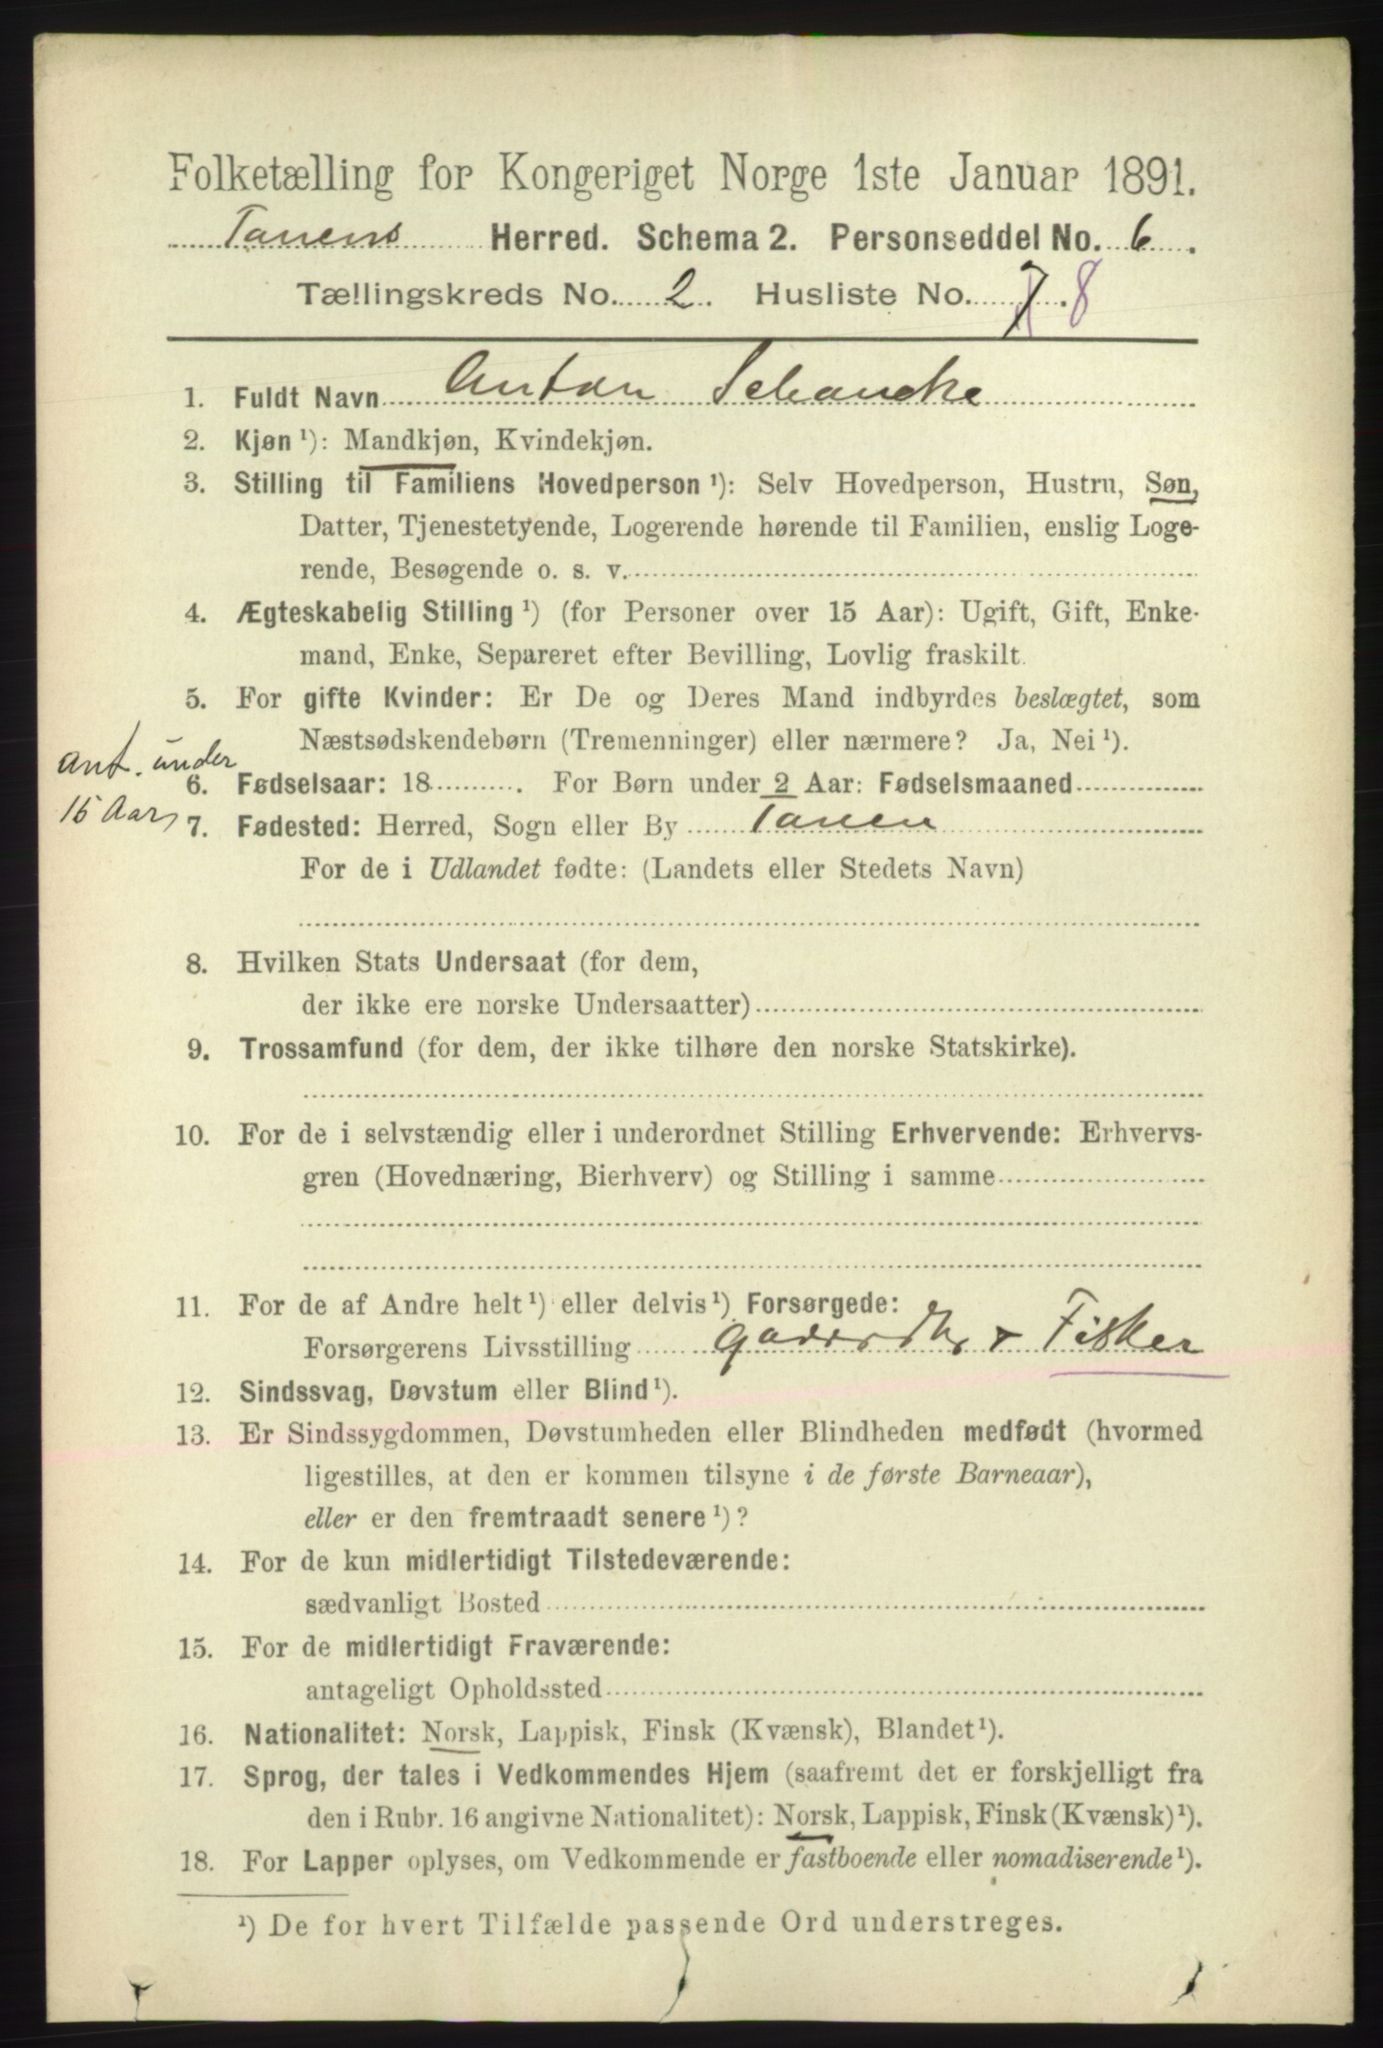 Folketælling for Kongeriget Norge 1ste Januar 1891.
Tanens Herred. Schema 2. Personseddel No. 6.
Tællingskreds No. 2. Husliste No. 7. 8
1. Fuldt Navn Anton Schancke
2. Kjøn ¹): Mandkjøn, Kvindekjøn.
3. Stilling til Familiens Hovedperson ¹): Selv Hovedperson, Hustru, Søn,
Datter, Tjenestetyende, Logerende hørende til Familien, enslig Loge-
rende, Besøgende o. s. v.
4. Ægteskabelig Stilling ¹) (for Personer over 15 Aar): Ugift, Gift, Enke-
mand, Enke, Separeret efter Bevilling, Lovlig fraskilt.
5. For gifte Kvinder: Er De og Deres Mand indbyrdes beslægtet, som
Næstsødskendebørn (Tremenninger) eller nærmere? Ja, Nei ¹).
ant. under
15 Aar
6. Fødselsaar: 18 . For Børn under 2 Aar: Fødselsmaaned
7. Fødested: Herred, Sogn eller By Tanen
For de i Udlandet fødte: (Landets eller Stedets Navn)
8. Hvilken Stats Undersaat (for dem,
der ikke ere norske Undersaatter)
9. Trossamfund (for dem, der ikke tilhøre den norske Statskirke).
10. For de i selvstændig eller i underordnet Stilling Erhvervende: Erhvervs-
gren (Hovednæring, Bierhverv) og Stilling i samme
11. For de af Andre helt ¹) eller delvis ¹) Forsørgede:
Forsørgerens Livsstilling Gaardbr + Fisker
12. Sindssvag, Døvstum eller Blind ¹).
13. Er Sindssygdommen, Døvstumheden eller Blindheden medfødt (hvormed
ligestilles, at den er kommen tilsyne i de første Barneaar),
eller er den fremtraadt senere ¹)?
14. For de kun midlertidigt Tilstedeværende:
sædvanligt Bosted
15. For de midlertidigt Fraværende:
antageligt Opholdssted
16. Nationalitet: Norsk, Lappisk, Finsk (Kvænsk), Blandet ¹).
17. Sprog, der tales i Vedkommendes Hjem (saafremt det er forskjelligt fra
den i Rubr. 16 angivne Nationalitet): Norsk, Lappisk, Finsk (Kvænsk) ¹).
18. For Lapper oplyses, om Vedkommende er fastboende eller nomadiserende ¹).
¹) De for hvert Tilfælde passende Ord understreges.